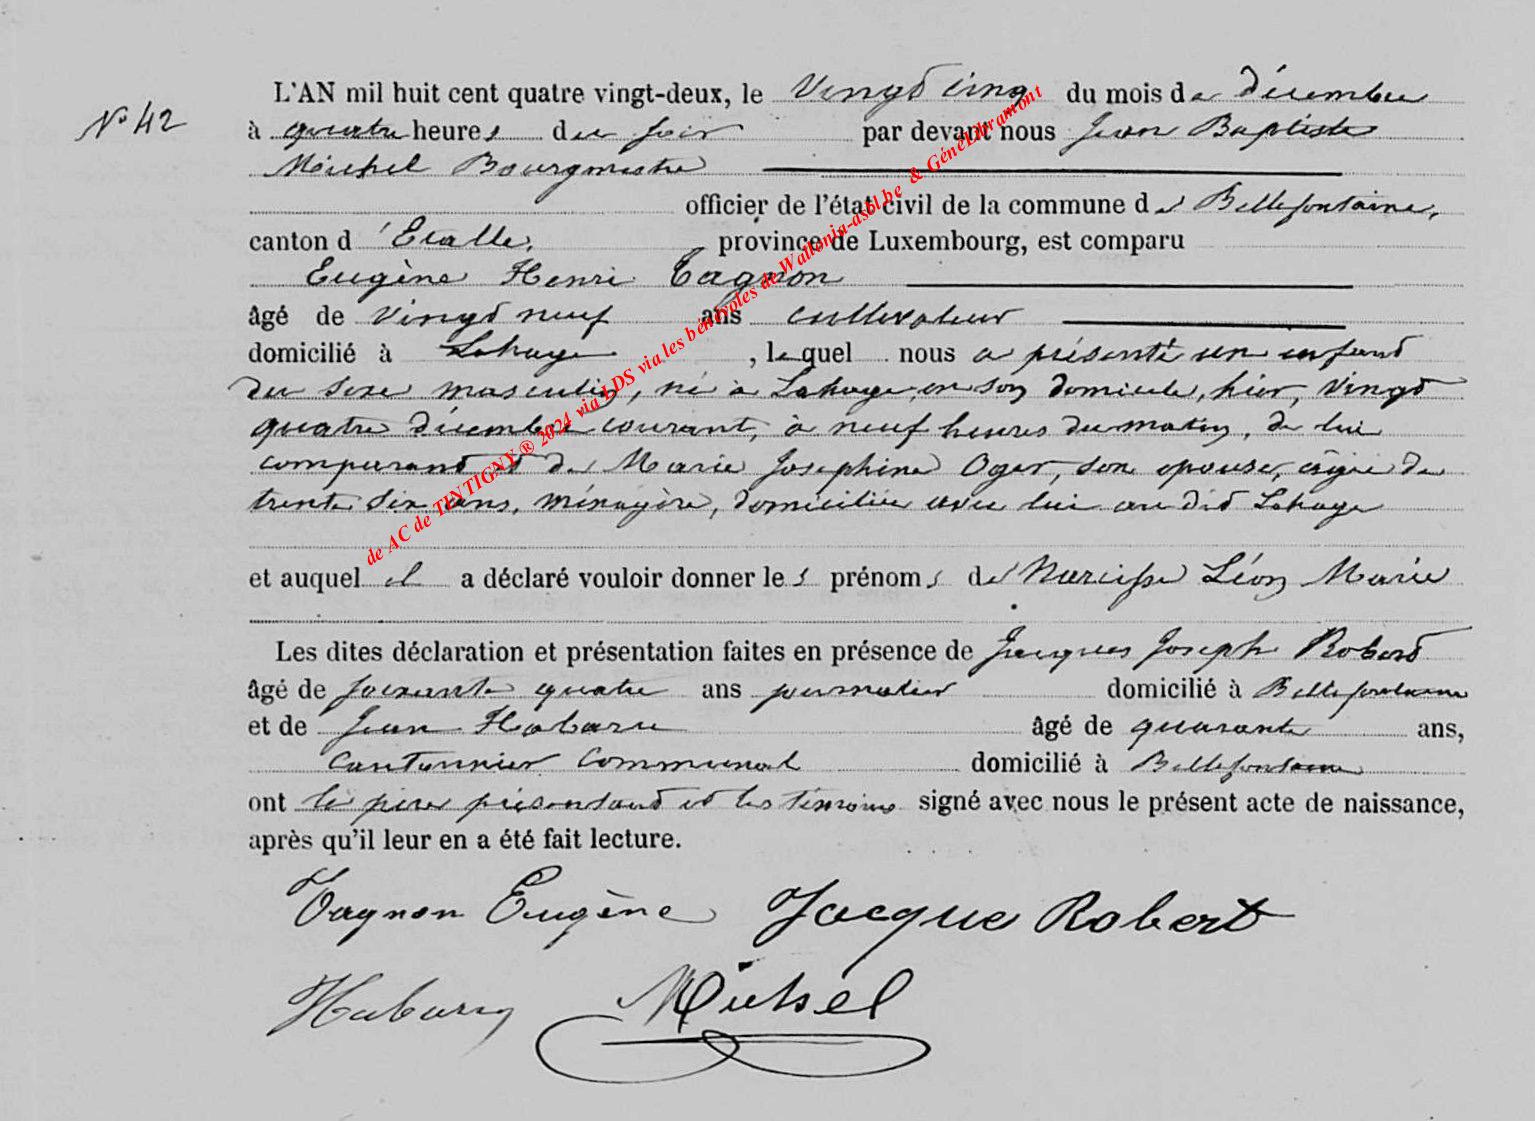 N° 42
L'AN mil huit cent quatre vingt-deux, le vingt cinq du mois de décembre
à quatre heures du soir par devant nous Jean Baptiste
Michel Bourgmestre
officier de l'état civil de la commune de Bellefontaine,
canton d'Etalle, province de Luxembourg, est comparu
Eugène Henri Tagnon
âgé de vingt neuf ans cultivateur
domicilié à Lahage, lequel nous a présenté un enfant
du sexe masculin, né à Lahage, en son domicile, hier, vingt
quatre décembre courant, à neuf heures du matin, de lui
comparant et de Marie Joséphine Oger, son épouse, âgée de
trente six ans, ménagère, domiciliée avec lui au dit Lahage
et auquel il a déclaré vouloir donner les prénoms de Narcisse Léon Marie
Les dites déclaration et présentation faites en présence de Jacques Joseph Robert
âgé de soixante quatre ans journalier domicilié à Bellefontaine
et de Jean Habaru âgé de quarante ans,
Cantonnier Communal domicilié à Bellefontaine
ont le père présentant et les témoins signé avec nous le présent acte de naissance,
après qu'il leur en a été fait lecture.
Tagnon Eugène Jacque Robert
Habaru Michel
de AC de TINTIGNY ® 2024 via LDS via les bénévoles de Wallonia-asbl.be & GénéLibramont